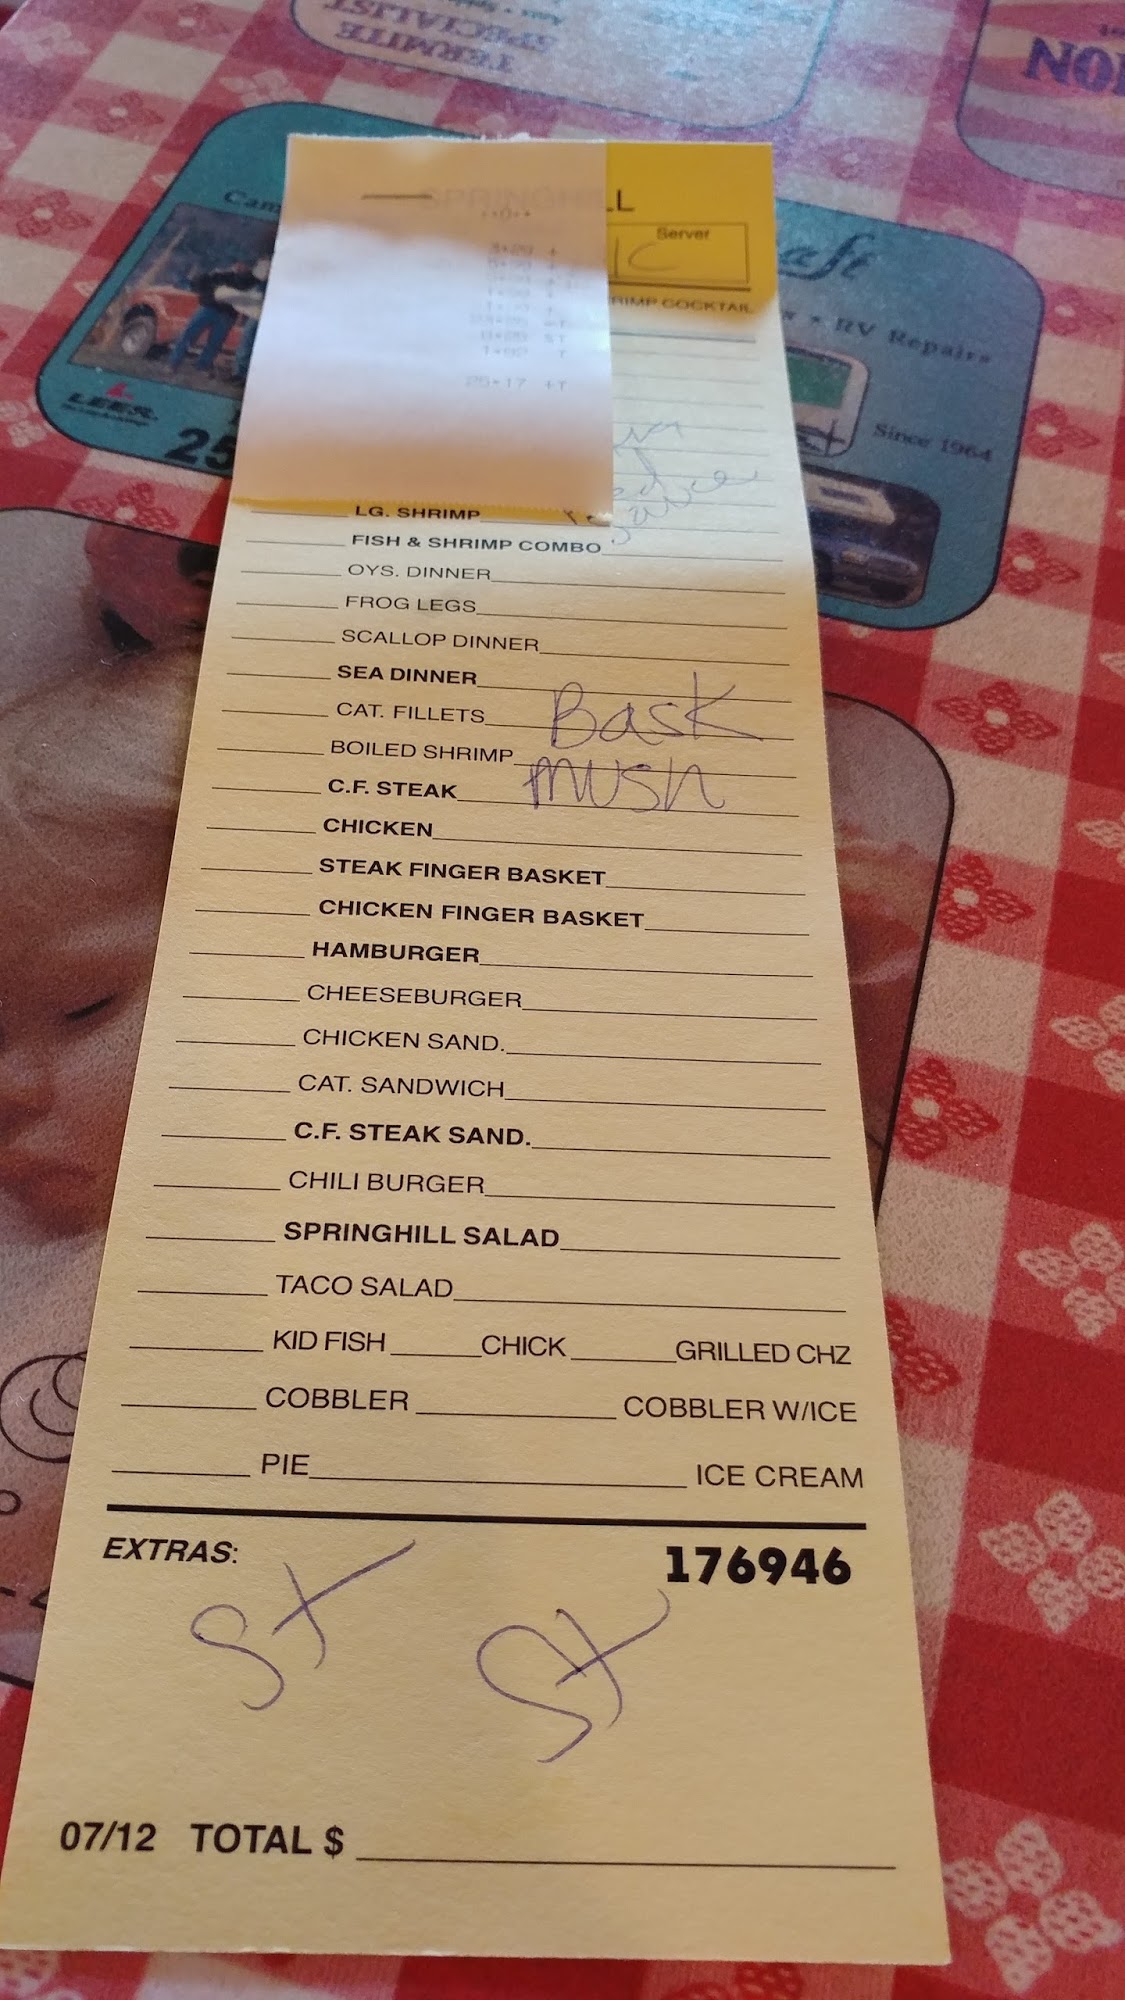 TERMITE
SPECIALIST
SPRINGHILL
Server
C
RIMP COCKTAIL
25•17 +T
RV Repairs
LEER
25
Since 1964
LG. SHRIMP
FISH & SHRIMP COMBO
OYS. DINNER
FROG LEGS
SCALLOP DINNER
SEA DINNER
CAT. FILLETS Bask
BOILED SHRIMP mush
C.F. STEAK
CHICKEN
STEAK FINGER BASKET
CHICKEN FINGER BASKET
HAMBURGER
CHEESEBURGER
CHICKEN SAND.
CAT. SANDWICH
C.F. STEAK SAND.
CHILI BURGER
SPRINGHILL SALAD
TACO SALAD
KID FISH CHICK GRILLED CHZ
COBBLER COBBLER W/ICE
PIE ICE CREAM
EXTRAS: 176946
St St
07/12 TOTAL $